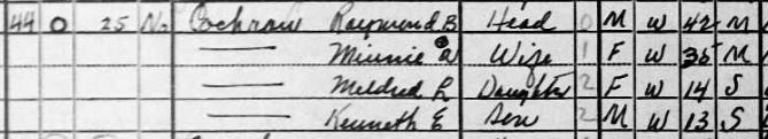 44 O 25 No Cochran Raymond B Head 0 M W 42 M
—— Minnie a Wife 1 F W 35 M
—— Mildred L Daughter 2 F W 14 S
—— Kenneth E Son 2 M W 13 S